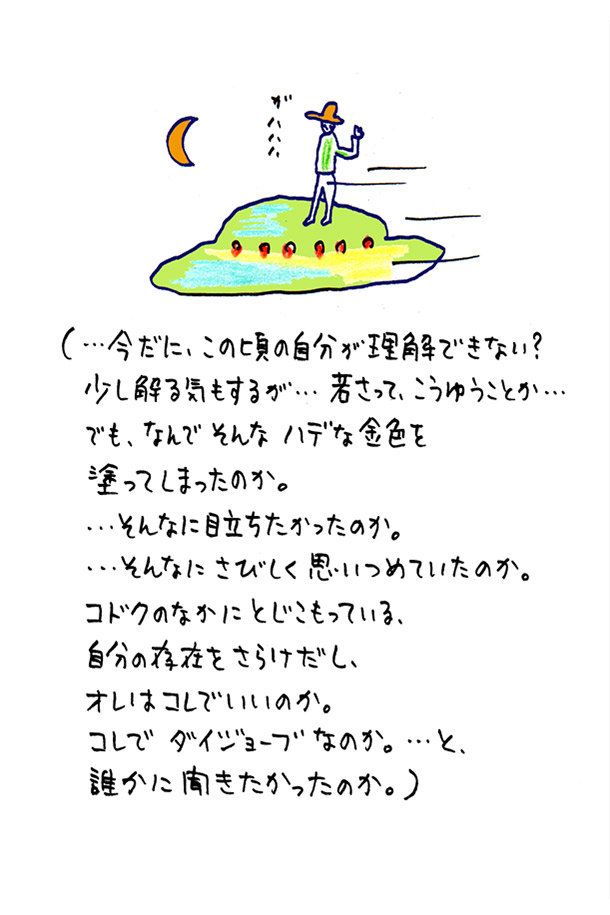 ガハハハハ
(…今だに、この頃の自分が理解できない?
少し解る気もするが… 若さって、こうゆうことか…
でも、なんで そんな ハデな金色を
塗ってしまったのか。
…そんなに目立ちたかったのか。
…そんなに さびしく 思いつめていたのか。
コドクのなかに とじこもっている、
自分の存在を さらけだし、
オレはコレでいいのか。
コレで ダイジョーブなのか。…と、
誰かに聞きたかったのか。)